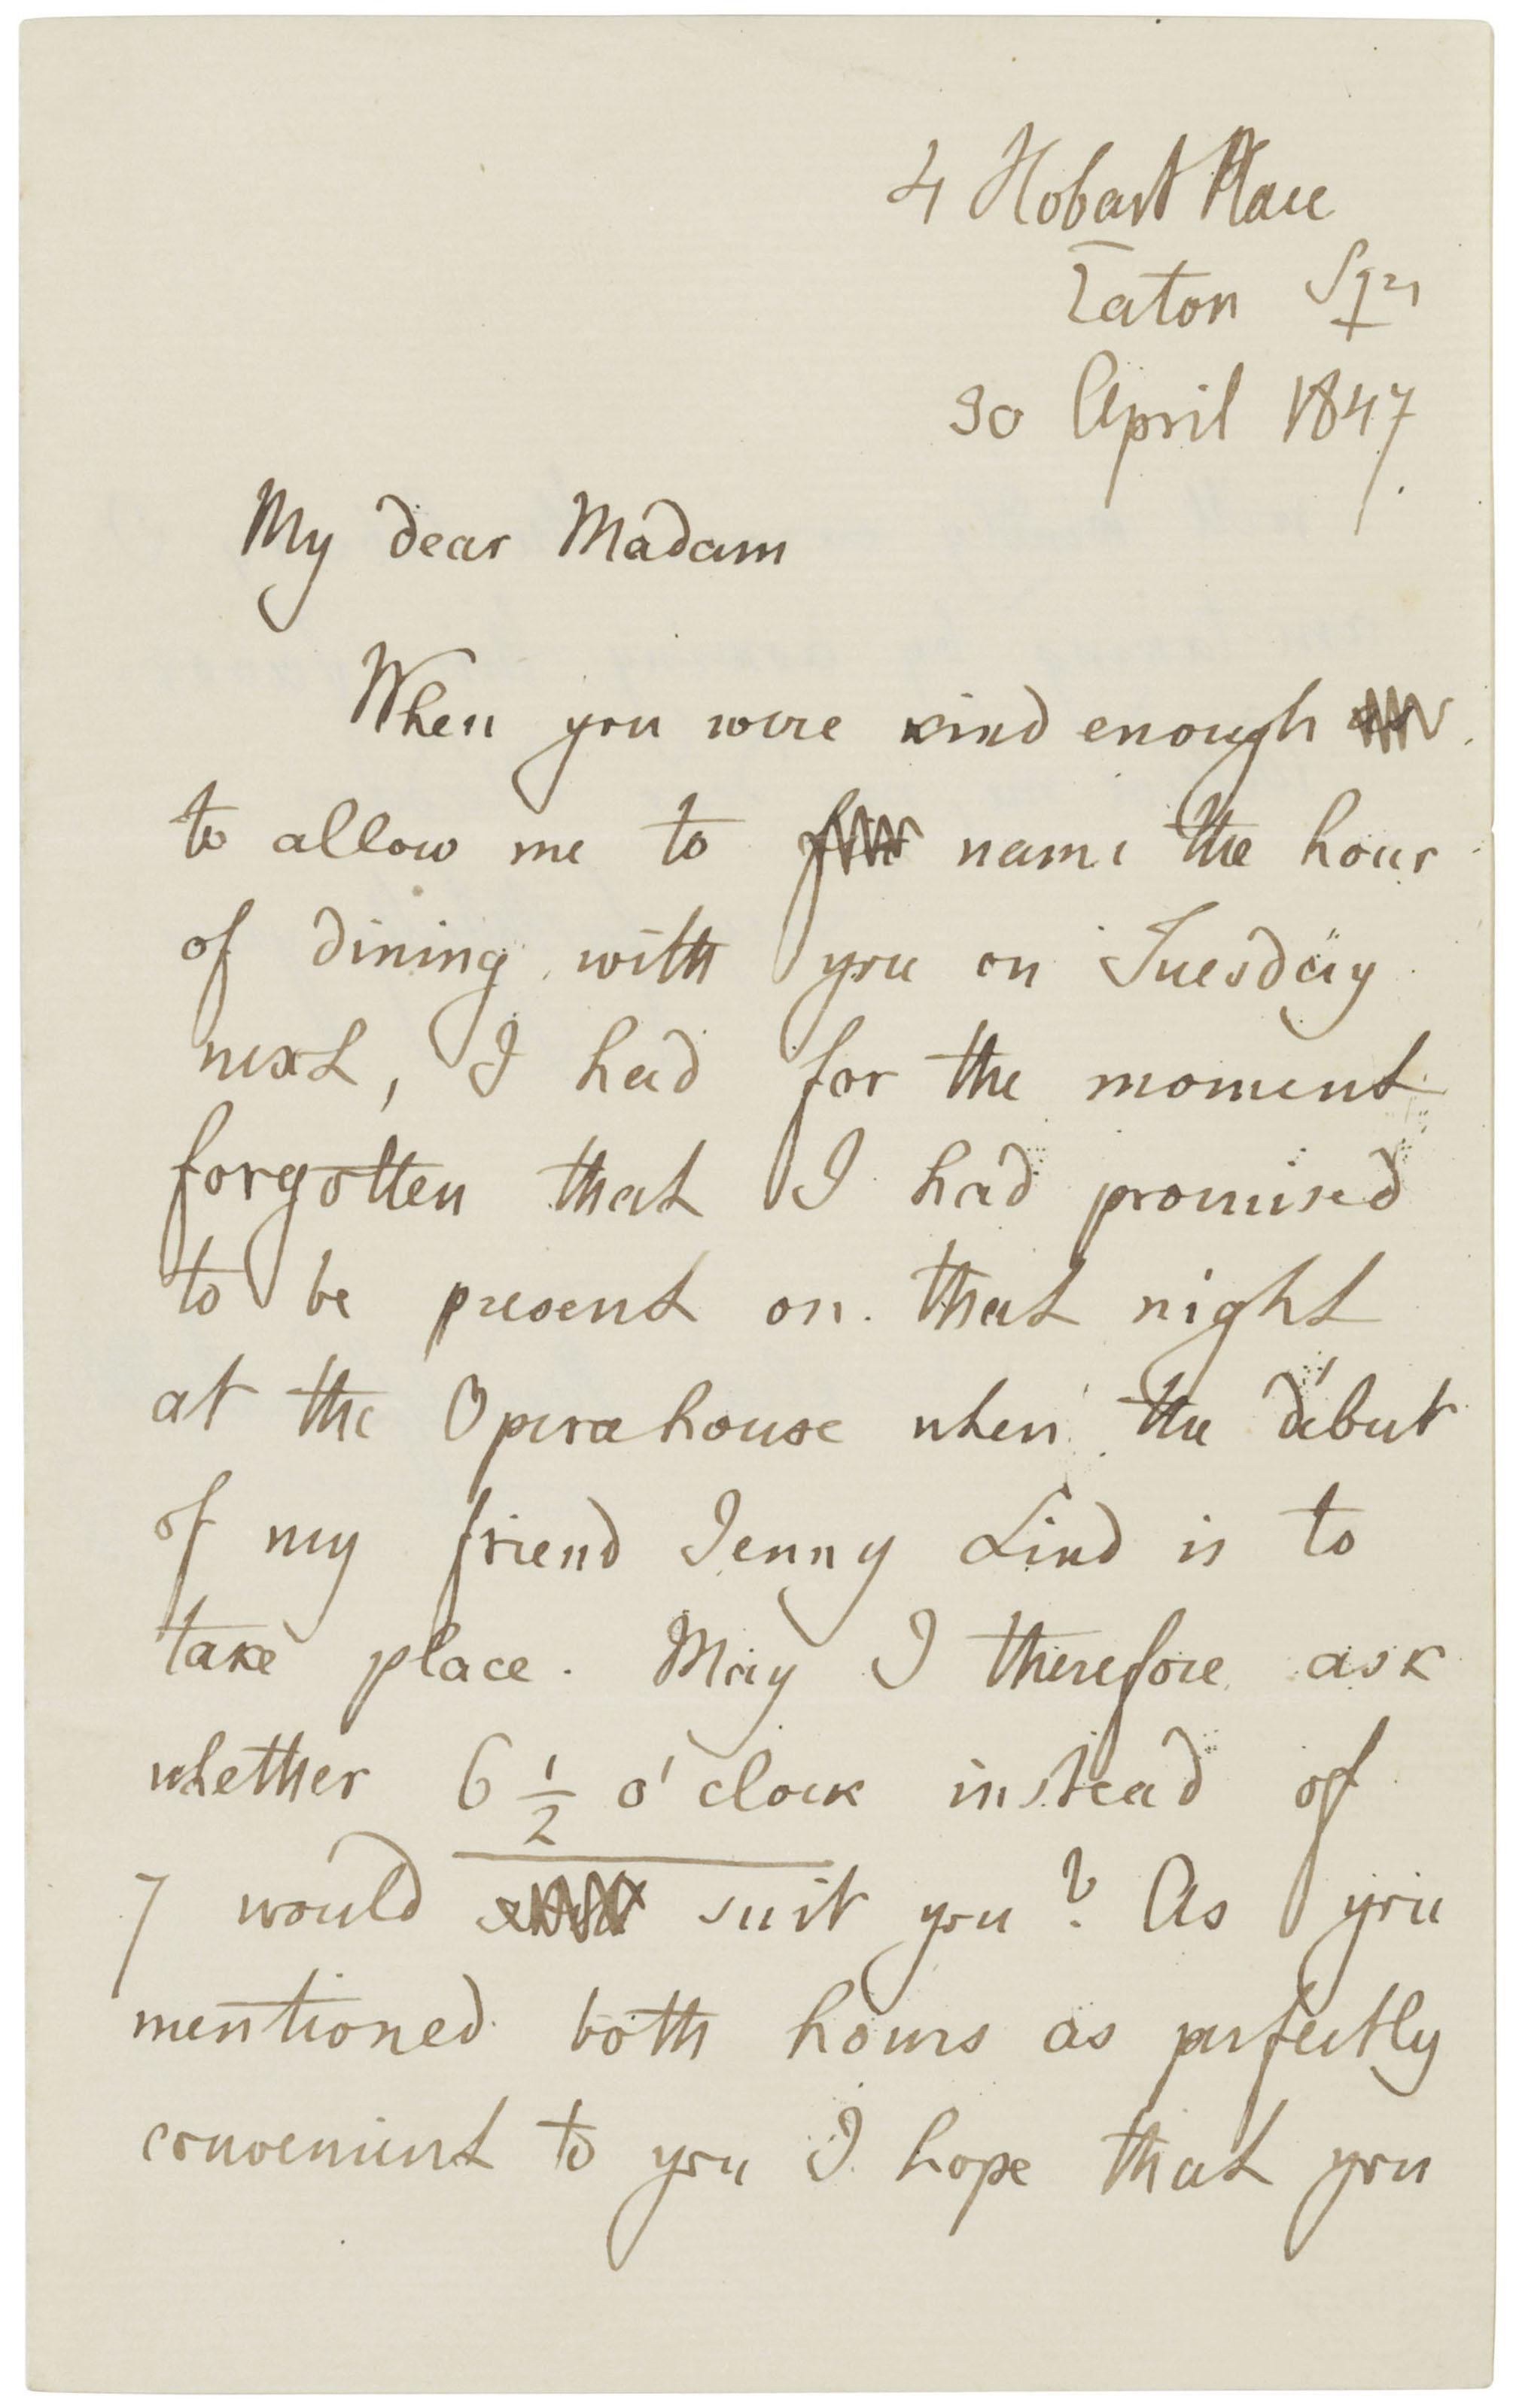 4 Hobart Place
Eaton Sqr
30 April 1847.
My dear Madam
When you were kind enough
to allow me to name the hour
of dining with you on Tuesday
next, I had for the moment
forgotten that I had promised
to be present on that night
at the Operahouse when the début
of my friend Jenny Lind is to
take place. May I therefore ask
whether 6 1/2 o'clock instead of
7 would suit you? As you
mentioned both hours as perfectly
convenient to you I hope that you